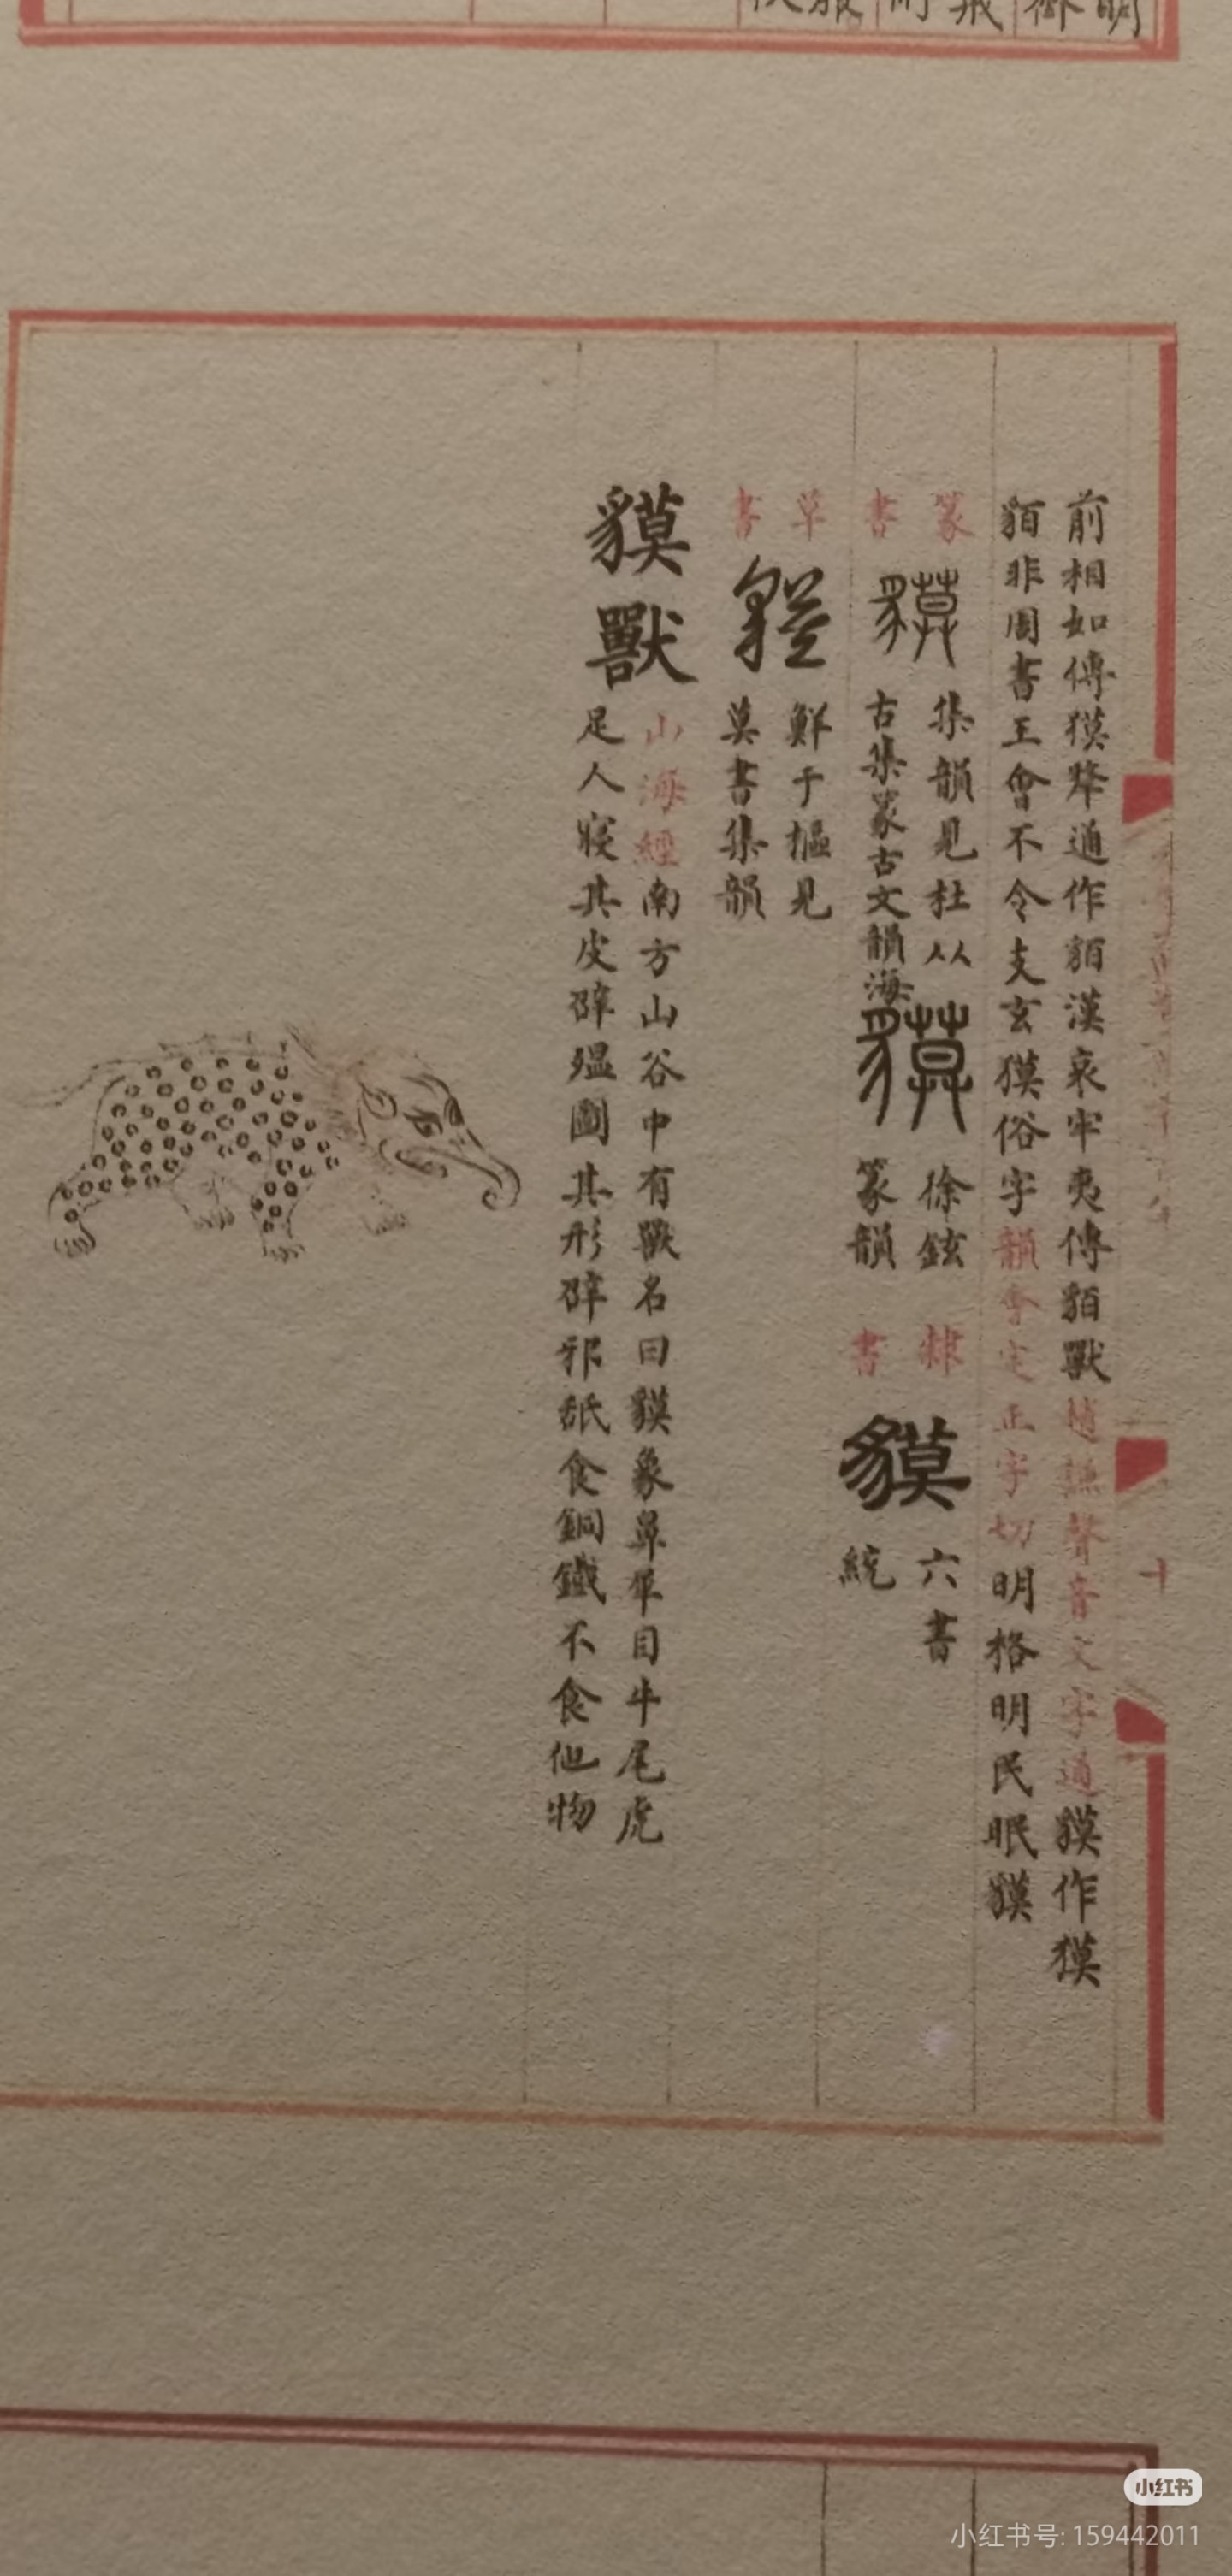 前相如傳獏犛通作貊漢哀牢夷傳貊獸隨謙聲音文字通貘作獏
貊非周書王會不令支玄獏俗字韻會定正字切明格明民眠貘
篆書
集韻見杜从
古集篆古文韻海
徐鉉
篆韻
隸書
貘
六書
統
草書
鮮于樞見
莫書集韻
貘獸
山海經南方山谷中有獸名曰貘象鼻犀目牛尾虎
足人寢其皮辟瘟圖其形辟邪舐食銅鐵不食他物
十
小红书
小红书号: 159442011